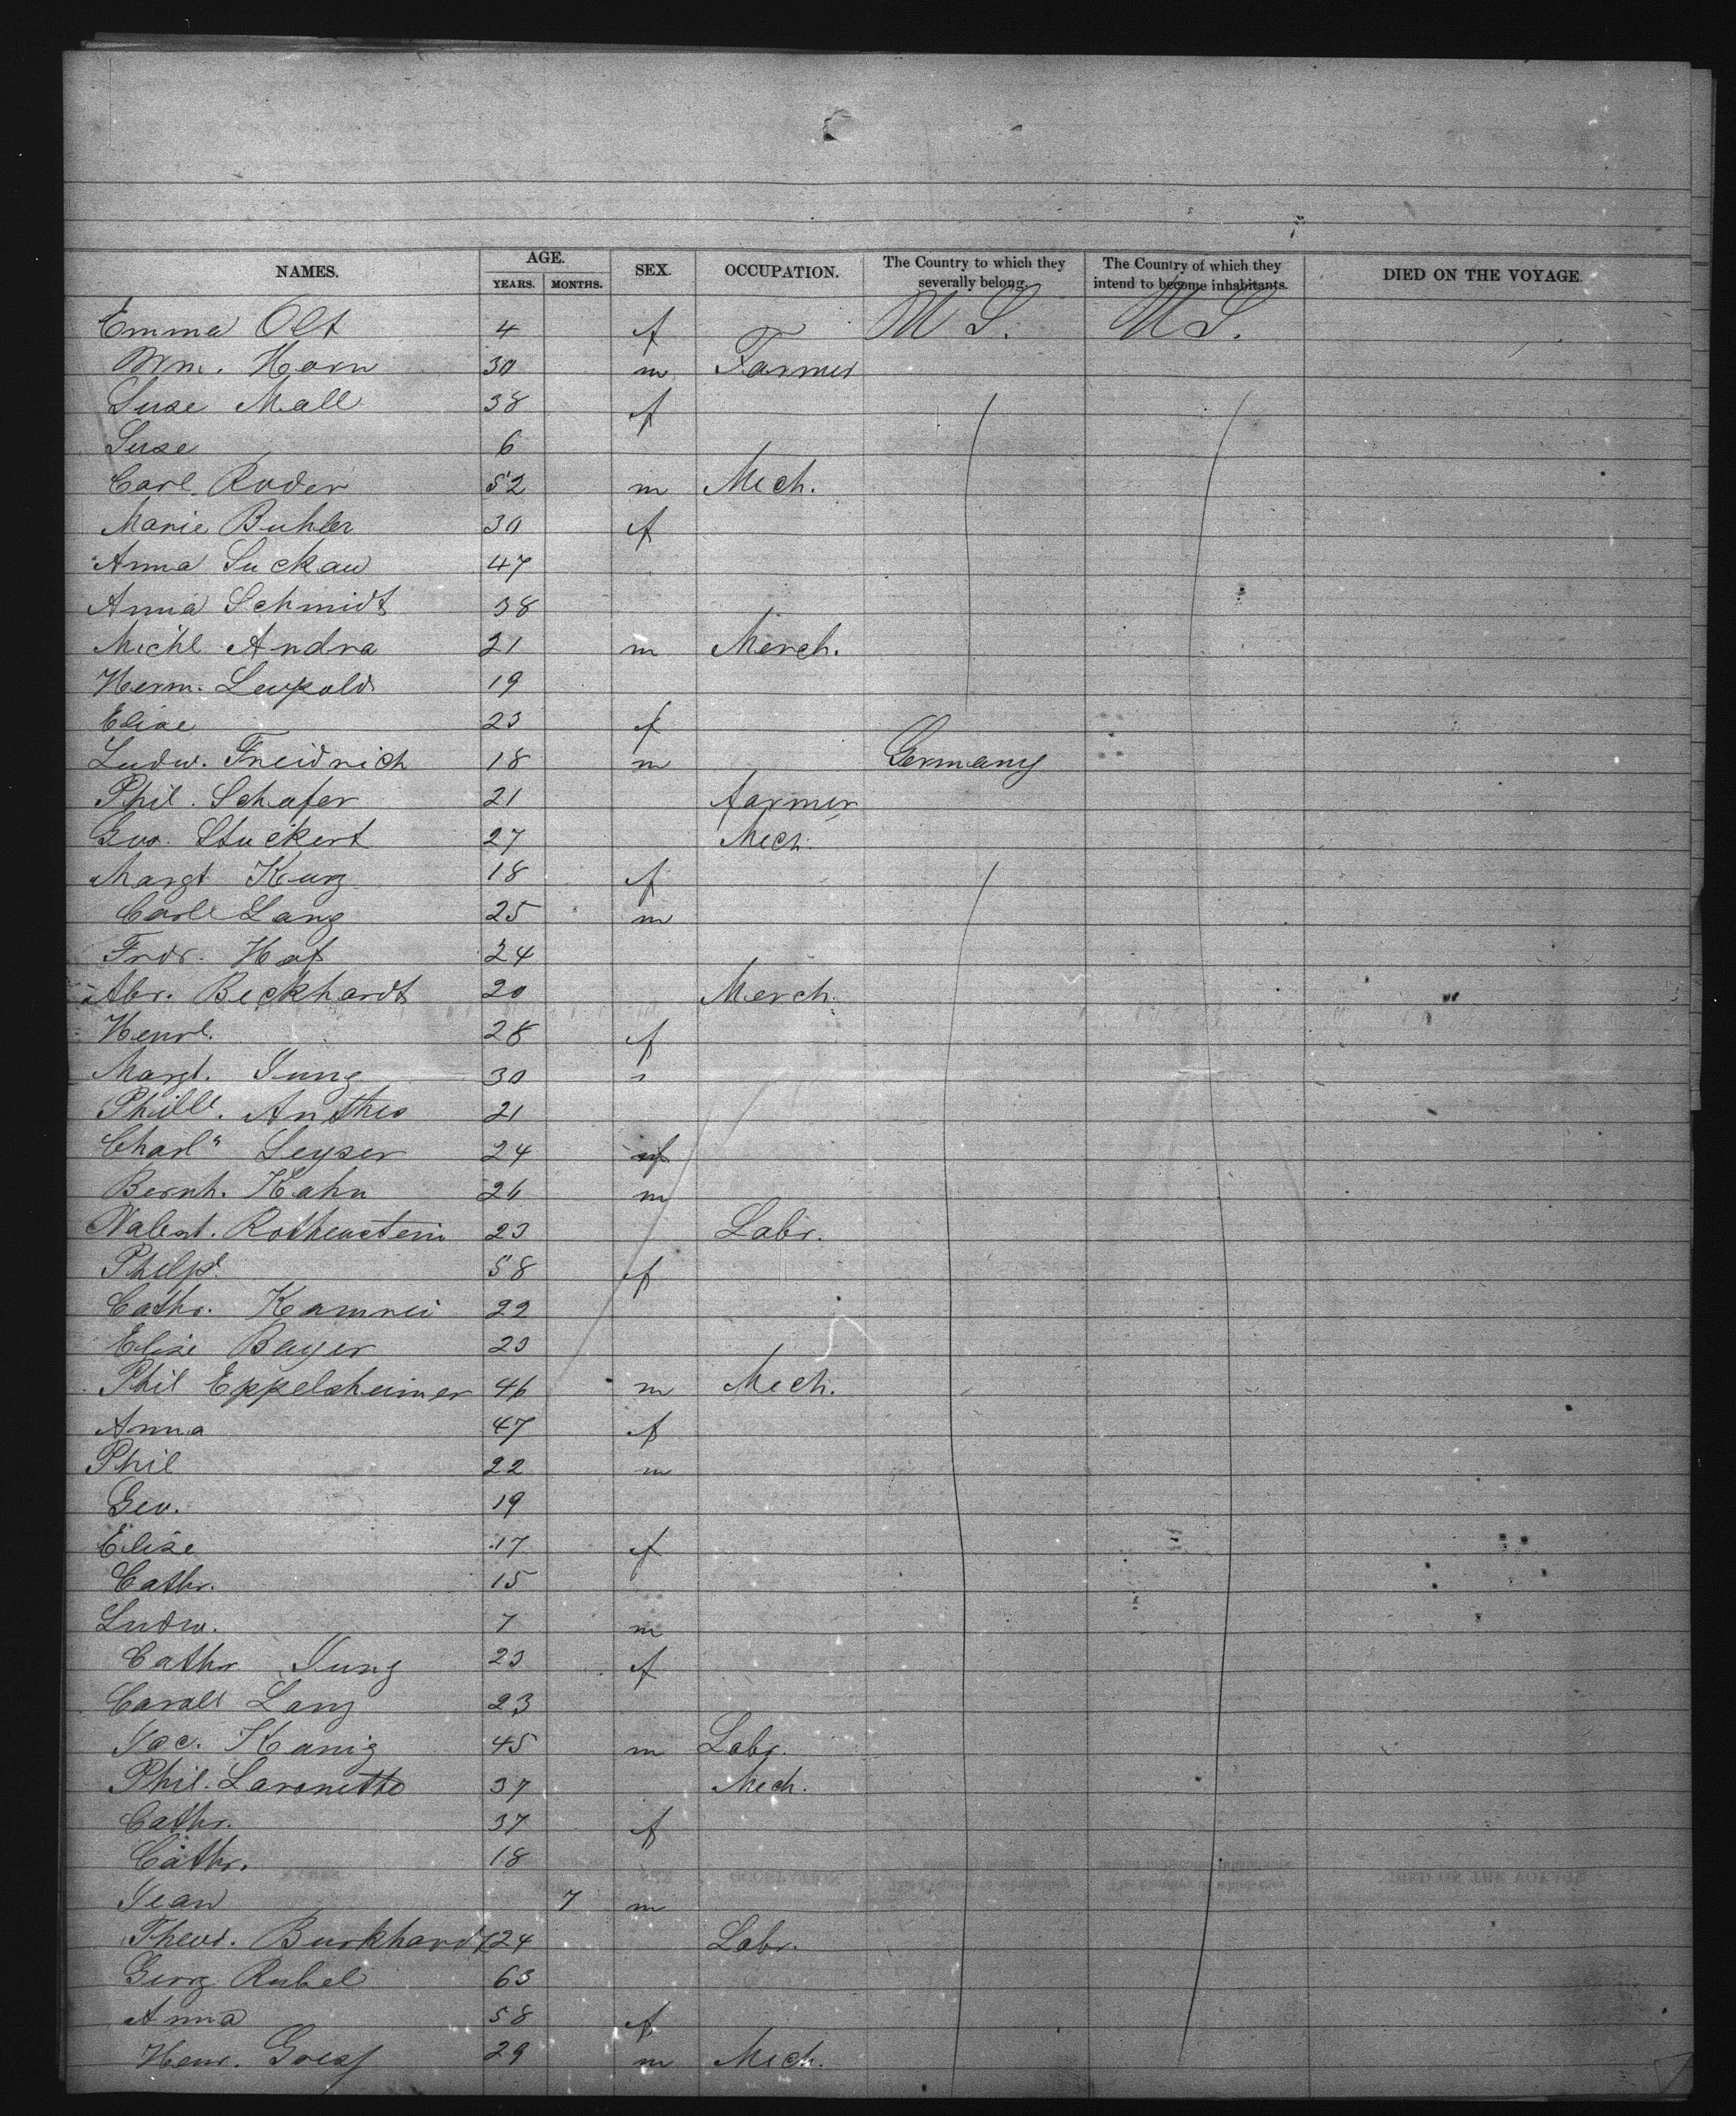 NAMES. AGE. YEARS. MONTHS. SEX. OCCUPATION. The Country to which they severally belong. The Country of which they intend to become inhabitants. DIED ON THE VOYAGE.
Emma Olt 4 f U S. U S.
Wm. Horn 30 m Farmer
Suse Mall 38 f
Suse 6
Carl Roder 52 m Mech.
Marie Buhler 30 f
Anna Suckau 47
Anna Schmidt 38
Michl Andra 21 m Merch.
Herm. Leupold 19
Elise 23 f
Ludw. Freidrich 18 m Germany
Phil. Schafer 21 farmer
Geo. Stuckert 27 Mech.
Margt Kurz 18 f
Carl Lang 25 m
Fridr. Hof 24
Abr. Beckhardt 20 Merch.
Henrl. 28 f
Margt. Jung 30
Phill. Anthes 21
Charl Leyser 24 f
Bernh. Kahn 26 m
Valent. Rothenstein 23 Labr.
Philpe. 58 f
Cathr. 22
Elise Bayer 23
Phil Eppelsheimer 46 m Mech.
Anna 47 f
Phil 22 m
Geo. 19
Elise 17 f
Cathr. 15
Ludw. 7 m
Cathr Jung 23 f
Caroll Lang 23
Jac. Kanig 45 m Labr.
Phil. Laronette 37 Mech.
Cathr. 37 f
Cathr. 18
Jean 7 m
Theod. Burkhardt 24 Labr.
Georg Rubel 63
Anna 58 f
Henr. 29 m Mech.